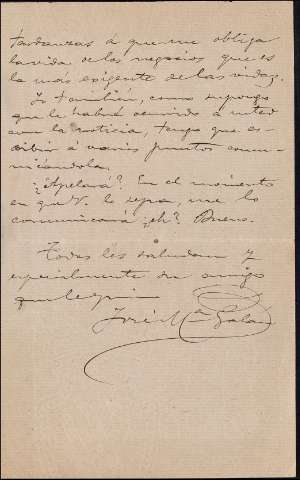 tardanzas á que me obliga
la vida de los negocios que es
la más exigente de las vidas.
Yo también, como supongo
que le habrá ocurrido a usted
con la noticia, tengo que es-
cribir á varios puntos comu-
nicándola.
¿Apelará? En el momento
en que V. lo sepa, me lo
comunicará ¿eh? Bueno.
Todos les saludan y
especialmente su amigo
que le quie
José Mª Galán